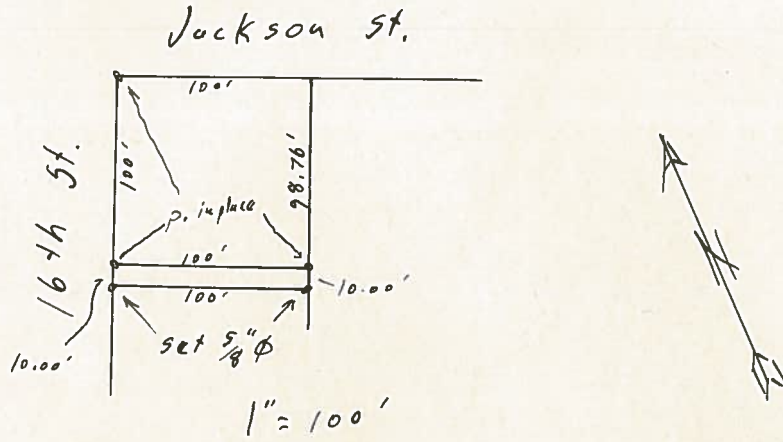 Jackson St.
100'
16th St.
100'
98.76'
p. in place
100'
100'
10.00'
10.00'
set 5/8" ⌀
N
1" = 100'